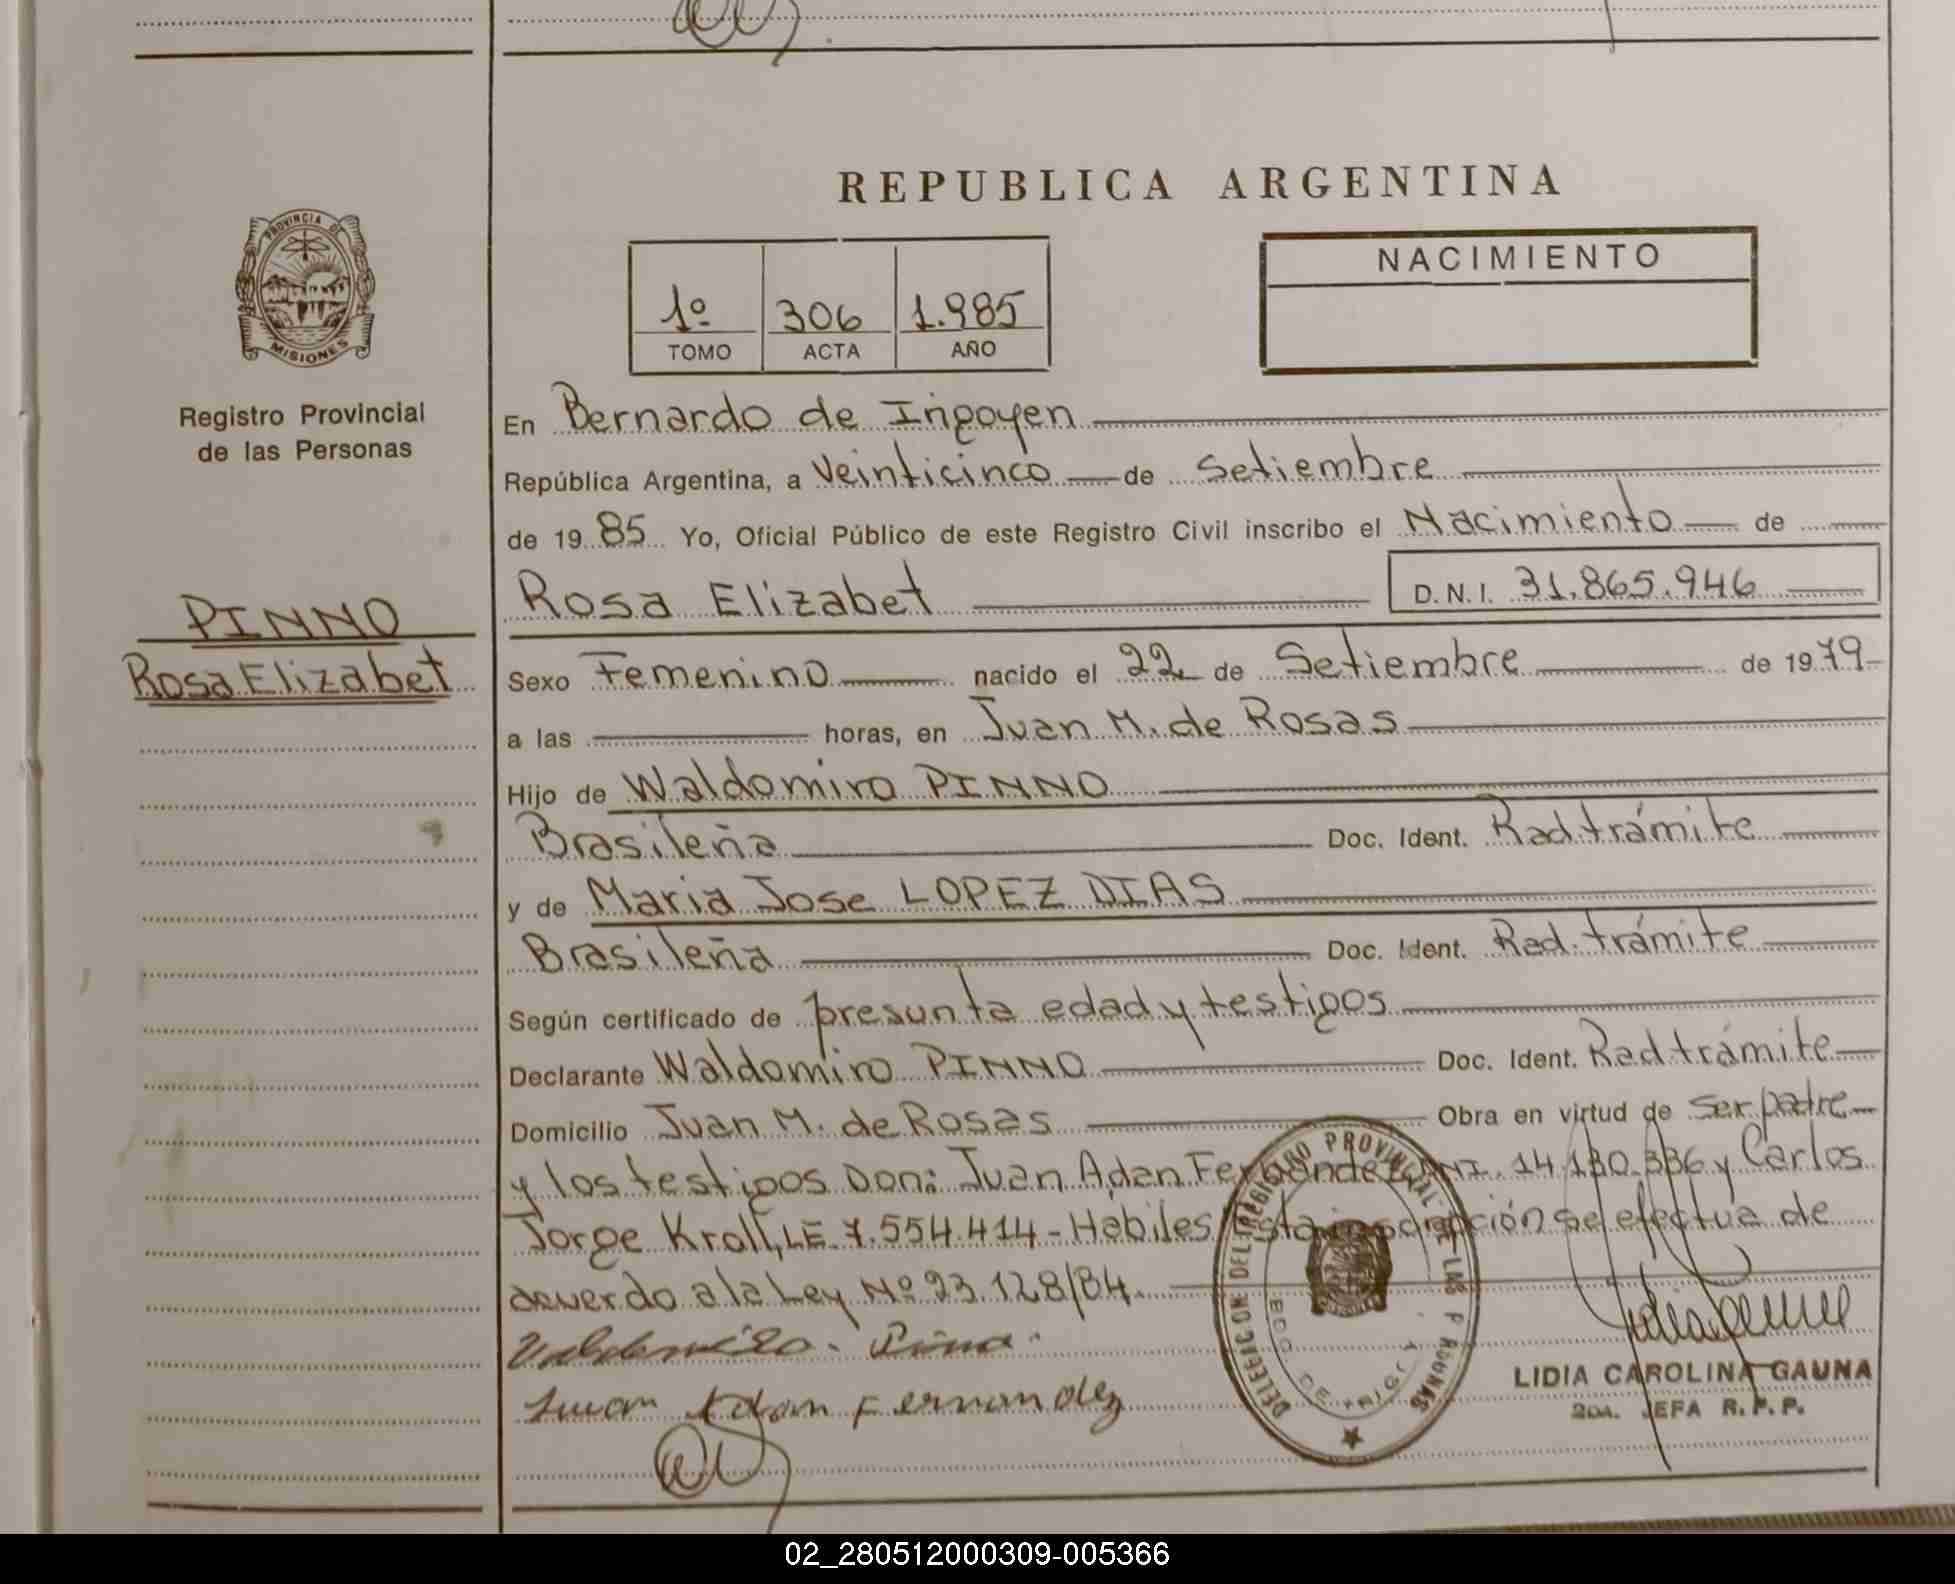 REPUBLICA ARGENTINA
PROVINCIA DE
MISIONES
Registro Provincial
de las Personas
PINNO
Rosa Elizabet
1º 306 1.985
TOMO ACTA AÑO
NACIMIENTO
En Bernardo de Irigoyen
República Argentina, a Veinticinco de Setiembre
de 1985 Yo, Oficial Público de este Registro Civil inscribo el Nacimiento de
Rosa Elizabet D.N.I. 31.865.946
Sexo Femenino nacido el 22 de Setiembre de 1979
a las horas, en Juan M. de Rosas
Hijo de Waldomiro PINNO
Brasileña Doc. Ident. Rad. trámite
y de Maria Jose LOPEZ DIAS
Brasileña Doc. Ident. Rad. trámite
Según certificado de presunta edad y testigos
Declarante Waldomiro PINNO Doc. Ident. Rad. trámite
Domicilio Juan M. de Rosas Obra en virtud de ser padre
y los testigos Don: Juan Adan Fernandez DNI. 14.130.336 y Carlos
Jorge Kroll, LE 7.554.414 - Habiles Esta inscripción se efectua de
acuerdo a la Ley Nº 23.128/84.
Juan Adan Fernandez
DELEGACION DEL REGISTRO PROVINCIAL DE LAS PERSONAS
BDO. DE IRIGOYEN
LIDIA CAROLINA GAUNA
2DA. JEFA R.P.P.
02_280512000309-005366